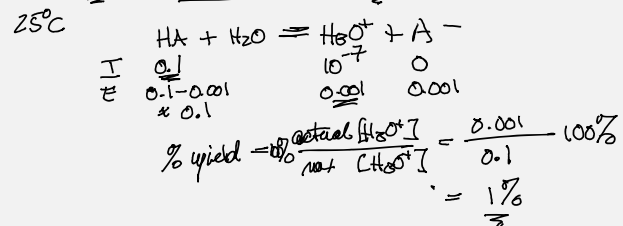 25°C
HA + H2O = H3O+ + A-
I 0.1 10-7 0
E 0.1-0.001 0.001 0.001
≈ 0.1
% yield = actual [H3O+] / [H3O+] = 0.001 / 0.1 100%
= 1%